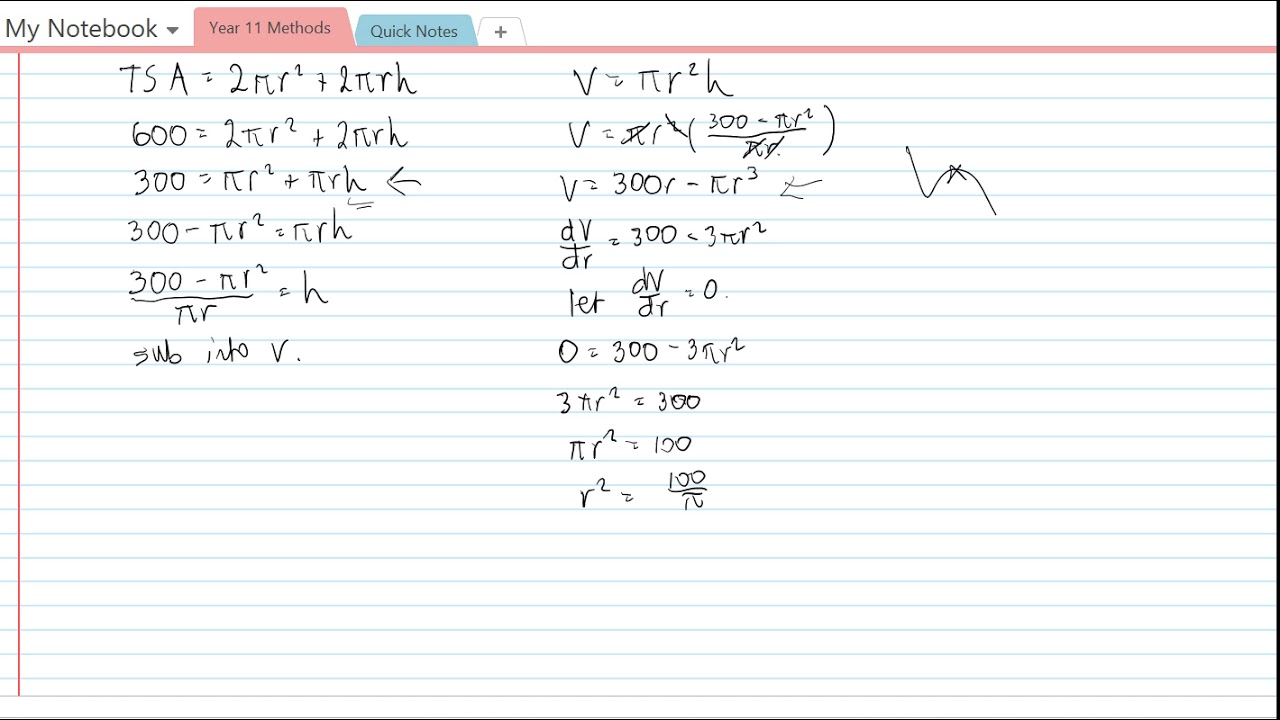 My Notebook
Year 11 Methods
Quick Notes
+
TSA = 2πr² + 2πrh
600 = 2πr² + 2πrh
300 = πr² + πrh ←
300 - πr² = πrh
300 - πr² / πr = h
sub into V.
V = πr²h
V = πr²(300 - πr² / πr)
V = 300r - πr³ ←
dV/dr = 300 - 3πr²
let dV/dr = 0.
0 = 300 - 3πr²
3πr² = 300
πr² = 100
r² = 100/π